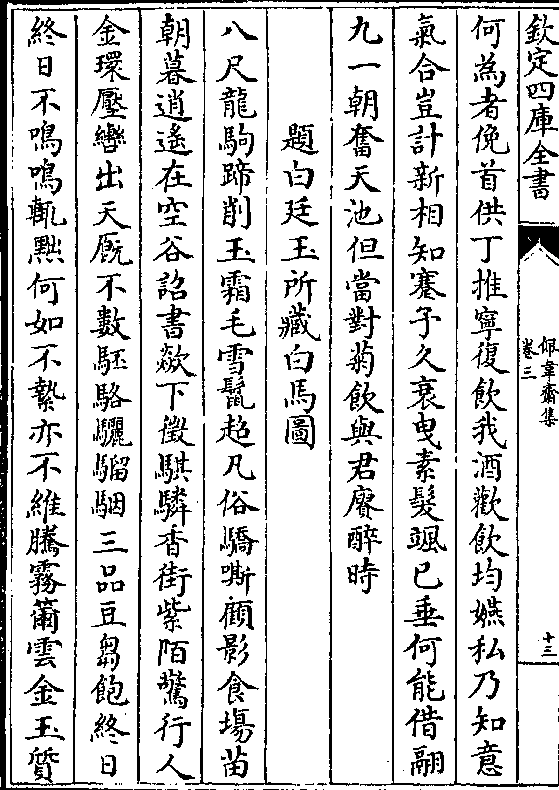 欽定四庫全書
佩韋齋集
卷三
十三
何為者俛首供丁推寧復飲我酒歡飲均嬿私乃知意
氣合豈計新相知蹇予久衰曳素髮颯已垂何能借翮
九一朝奮天池但當對菊飲與君賡醉時
題白廷玉所藏白馬圖
八尺龍駒蹄削玉霜毛雪鬛超凡俗驕嘶顧影食塲苗
朝暮逍遙在空谷詔書歘下徵騏驎香街紫陌驚行人
金環壓轡出天厩不數駓駱驪騮駰三品豆芻飽終日
終日不鳴鳴輒黜何如不縶亦不維騰霧籋雲金玉質